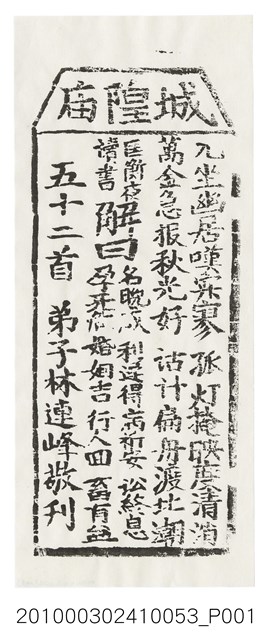 城隍庙
兀坐幽居嘆寂寥　孤灯掩映度清宵
萬金忽报秋光好　活計扁舟渡北潮
匡衡夜讀書
解曰　名晚成　利遲得　病祈安　訟終息　孕　婚姻吉　行人回　畜有益
五十二首　弟子林連峰敬刊
201000302410053_P001